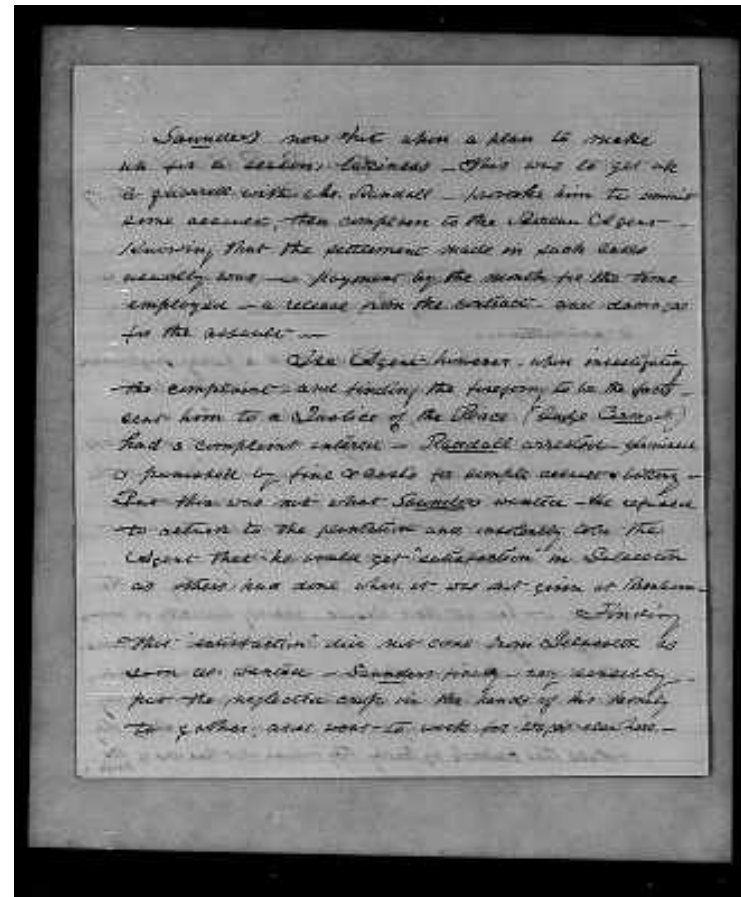 Saunders now hit upon a plan to make
up for a seasons laziness – This was to get up
a quarrell with Chs. Randall – provoke him to commit
some assault, then complain to the Bureau Agent –
Knowing that the settlement made in such cases
usually was – payment by the month for the time
employed – a release from the contract – and damages
for the assault –
The Agent however, when investigating
the complaint – and finding the foregoing to be the facts –
sent him to a Justice of the Peace (Judge
had a complaint entered – Randall arrested –
& punished by fine & costs for simple assault & battery –
But this was not what Saunders wanted – he refused
to return to the plantation and insolently told the
Agent that he would get "satisfaction" in Galveston
as others had done when it was not given at Bonham –
Finding
this "satisfaction" did not come from Galveston as
soon as wanted – Saunders finally – very sensibly
put the neglected crop in the hands of his family
to gather, and went to work for wages elsewhere –